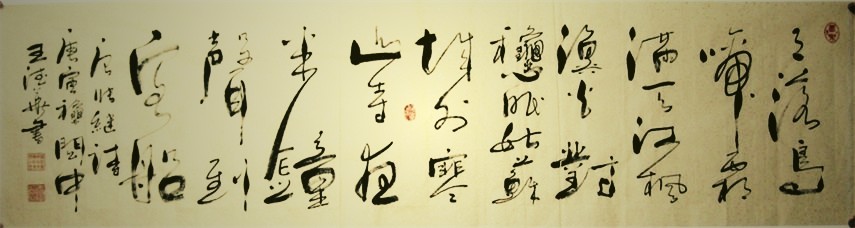 月落烏
啼霜
滿天江楓
漁火對
愁眠姑蘇
城外寒
山寺夜
半鐘
聲到
客船
唐張繼詩
庚寅穐閩中
王德書